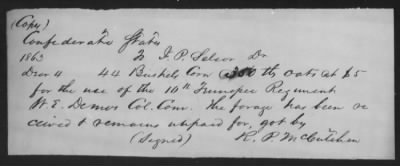 (Copy)
Confederate States
1863 To J. P. Selsor Dr
Decr 11 44 Bushels Corn 300 lb oats at $5
for the use of the 10th Tennessee Regiment
N. E. Demos Col. Com. The forage has been re
ceived & remains unpaid for, got by
(Signed) R. P. McCutchen